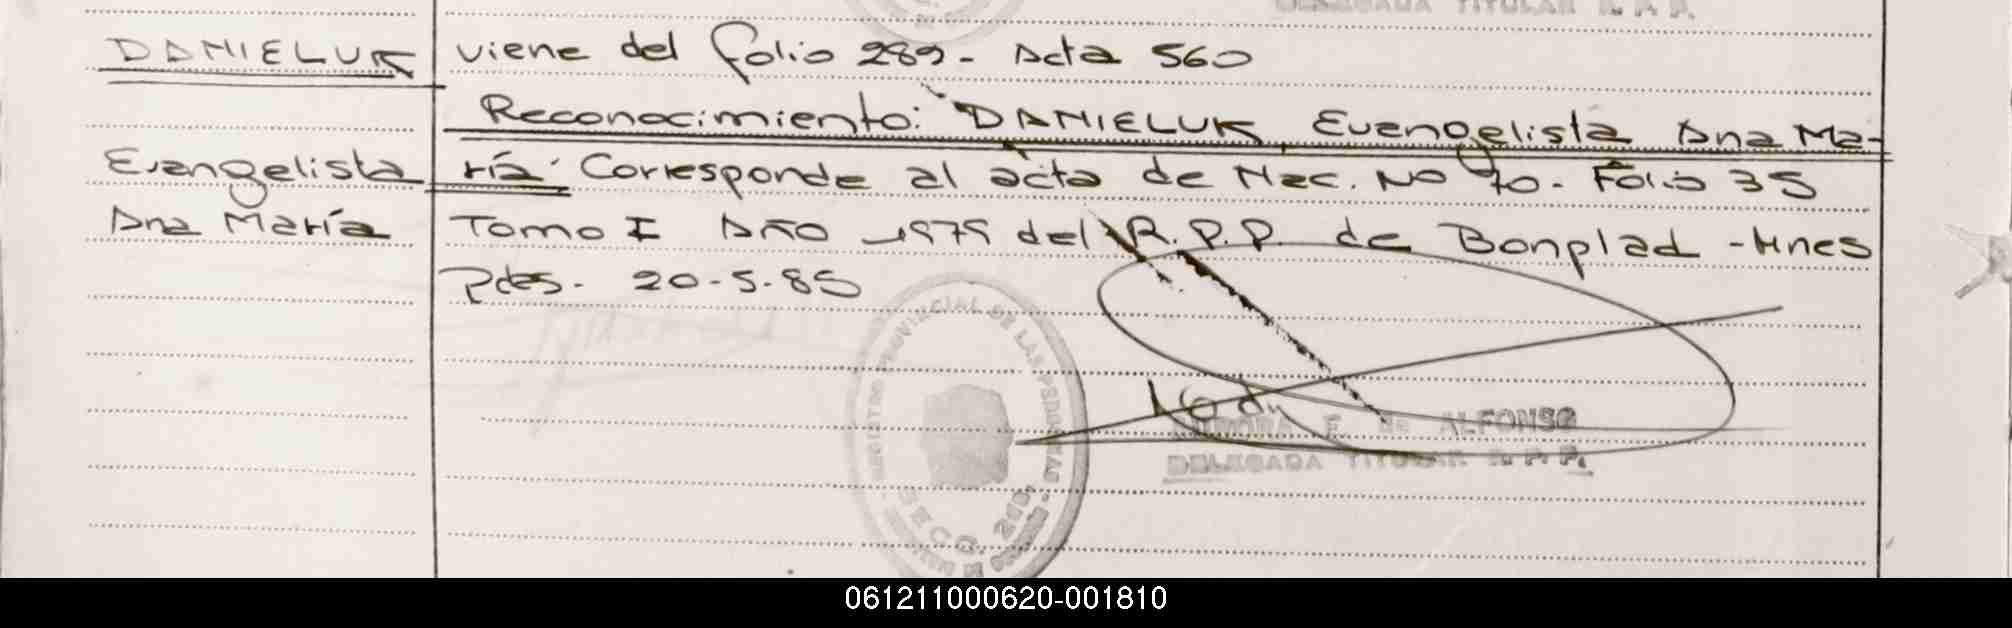 DELEGADA TITULAR R. P. P.
DANIELUK
viene del folio 289 - Acta 560
Reconocimiento: DANIELUK Evangelista Ana Ma-
Evangelista
ría. Corresponde al acta de Nac. No 70 - Folio 35
Ana María
Tomo I Año 1979 del R.P.P. de Bonplad - Mnes
Pdas. 20-5-85
REGISTRO PROVINCIAL DE LAS PERSONAS
SECC.
E. de ALFONSO
DELEGADA TITULAR R. P. P.
061211000620-001810